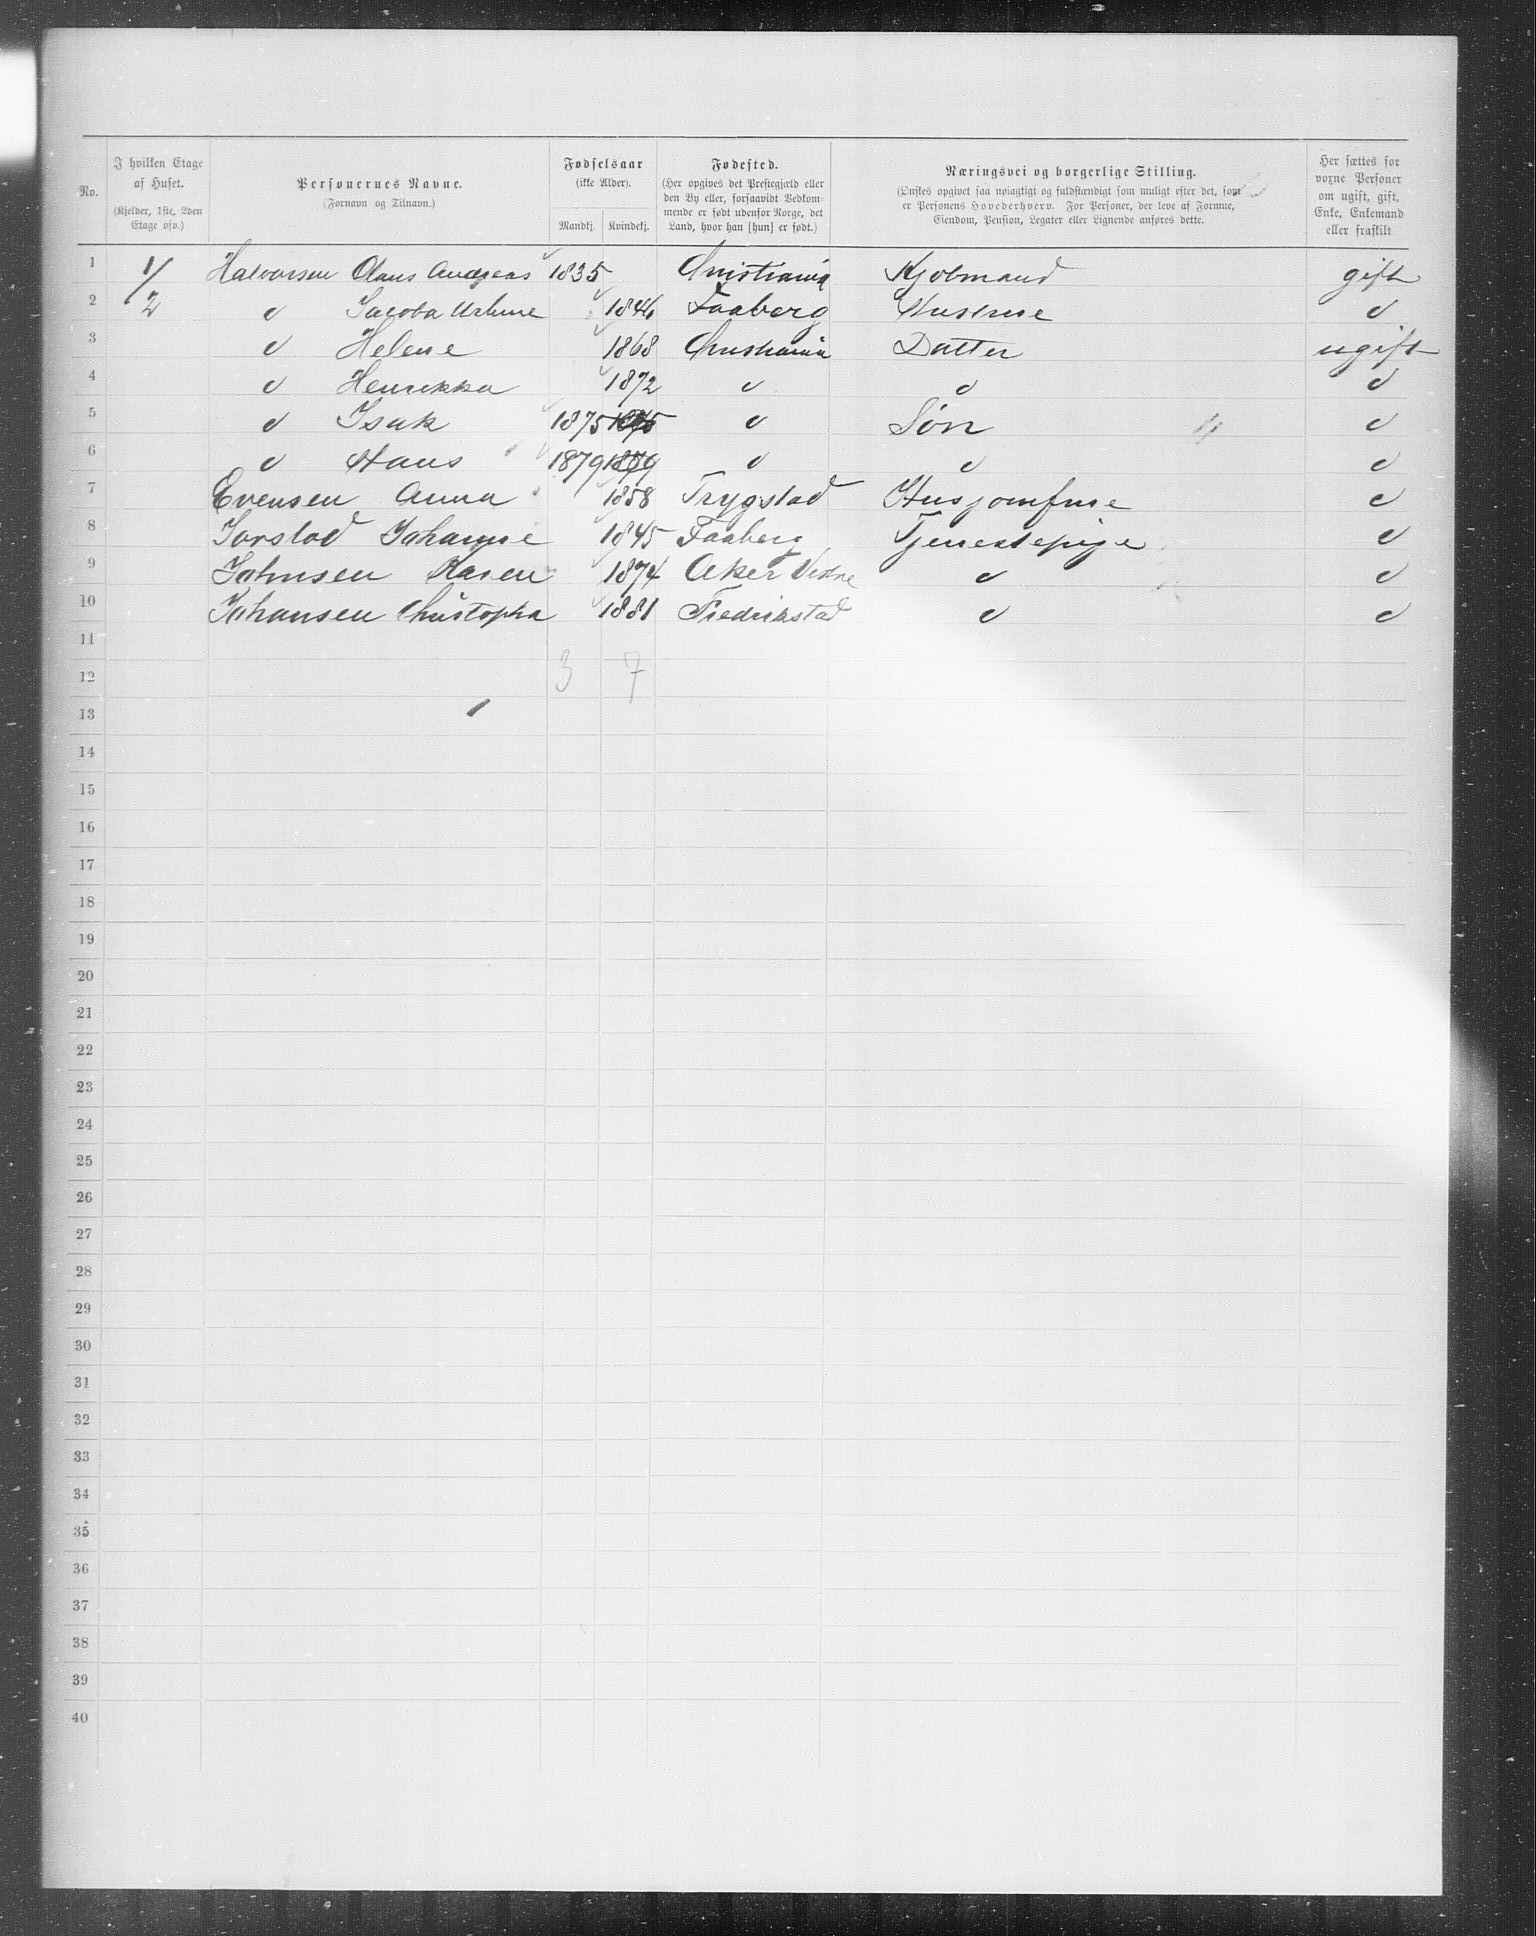 No.
I hvilken Etage af Huset.
(Kjelder, 1ste, 2den Etage osv.)
Personernes Navne.
(Fornavn og Tilnavn.)
Fødselsaar
(ikke Alder).
Mandkj. Kvindekj.
Fødested.
(Her opgives det Prestegjæld eller den By eller, forsaavidt Vedkommende er født udenfor Norge, det Land, hvor han [hun] er født.)
Næringsvei og borgerlige Stilling.
(Ønskes opgivet saa nøiagtigt og fuldstændigt som muligt efter det, som er Personens Hovederhverv. For Personer, der leve af Formue, Eiendom, Pension, Legater eller Lignende anføres dette.
Her sættes for vorne Personer om ugift, gift, Enke, Enkemand eller fraskilt
1 1/2 Halvorsen Olaus Andreas 1835 Christiania Kjøbmand gift
2 d Jacoba 1846 Faaberg Hustrue d
3 d Helene 1868 Christiania Datter ugift
4 d Henrikka 1872 d d d
5 d Isak 1875 1875 d Søn 4 d
6 d Hans 1879 1879 d d d
7 Evensen Anna 1858 Trygstad Husjomfrue d
8 Jorstad Johanne 1845 Faaberg Tjenestepige d
9 Johnsen Karen 1874 Aker Vestre d d
10 Johansen Christopha 1881 Fredrikstad d d
11
12 3 7
13
14
15
16
17
18
19
20
21
22
23
24
25
26
27
28
29
30
31
32
33
34
35
36
37
38
39
40